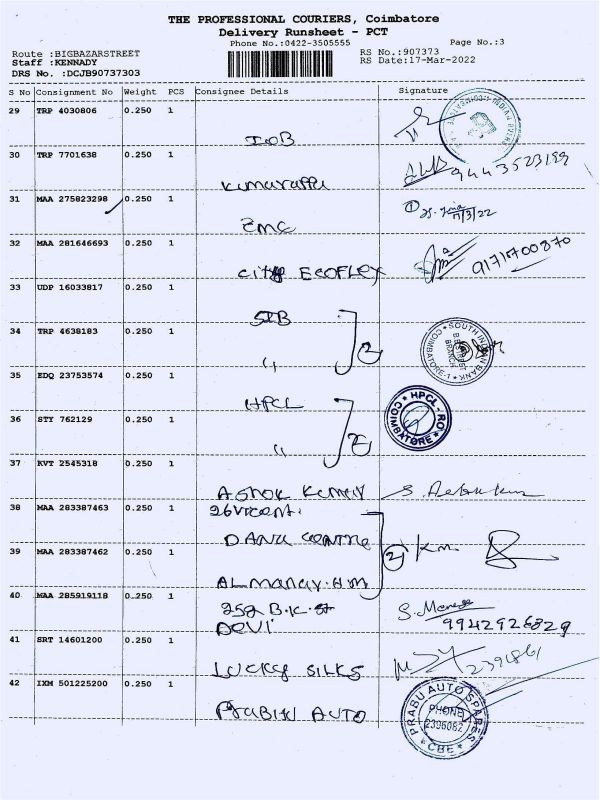 THE PROFESSIONAL COURIERS, Coimbatore
Delivery Runsheet - PCT
Phone No.:0422-3505555
Page No.:3
Route :BIGBAZARSTREET
Staff :KENNADY
DRS No. :DCJB90737303
RS No.:907373
RS Date:17-Mar-2022
S No Consignment No Weight PCS Consignee Details Signature
29 TRP 4030806 0.250 1
IOB
30 TRP 7701638 0.250 1
Kumarappa
9443523199
31 MAA 275823298 0.250 1
EMC
17/3/22
32 MAA 281646693 0.250 1
City ECOFLEX
9171700870
33 UDP 16033817 0.250 1
SIB
34 TRP 4638183 0.250 1
"
2
SOUTH INDIAN BANK
COIMBATORE-1
BRANCH
35 EDQ 23753574 0.250 1
HPCL
36 STY 762129 0.250 1
"
2
HPCL - RO
COIMBATORE
37 KVT 2545318 0.250 1
Ashok Kumar
38 MAA 283387463 0.250 1
DANU CENTRE
2
39 MAA 283387462 0.250 1
252 B.K. St
40 MAA 285919118 0.250 1
DEVI
9942926829
41 SRT 14601200 0.250 1
LUCKY SILKS
42 IXM 501225200 0.250 1
PRABHU AUTO
PRABU AUTO SPARES
PHONE
2396082
CBE